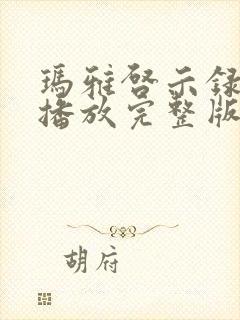 瑪雅啓示錄
播放完整版
胡府